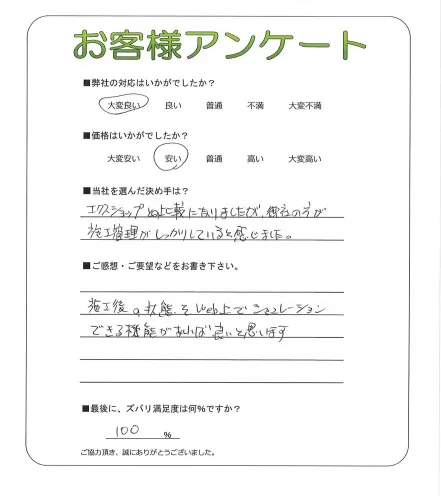 お客様アンケート
■弊社の対応はいかがでしたか?
大変良い 良い 普通 不満 大変不満
■価格はいかがでしたか?
大変安い 安い 普通 高い 大変高い
■当社を選んだ決め手は?
エクスショップと比較になりましたが、御社の方が
施工管理がしっかりしていると感じました。
■ご感想・ご要望などをお書き下さい。
施工後の状態をWeb上でシュミレーション
できる機能があれば良いと思います
■最後に、ズバリ満足度は何%ですか?
100 %
ご協力頂き、誠にありがとうございました。